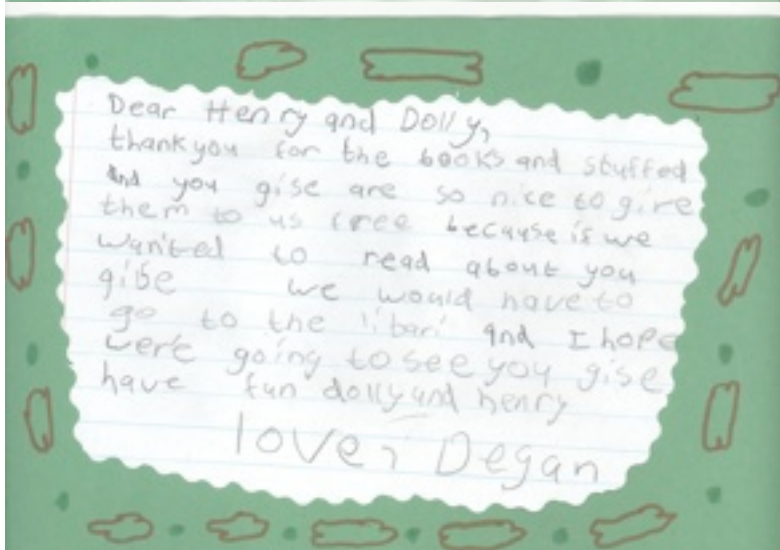 Dear Henry and Dolly,
thankyou for the books and stuffed
and you gise are so nice to give
them to us free because if we
wanted to read about you
gise we would have to
go to the libari and I hope
were going to see you gise
have fun dolly and henry
love, Degan